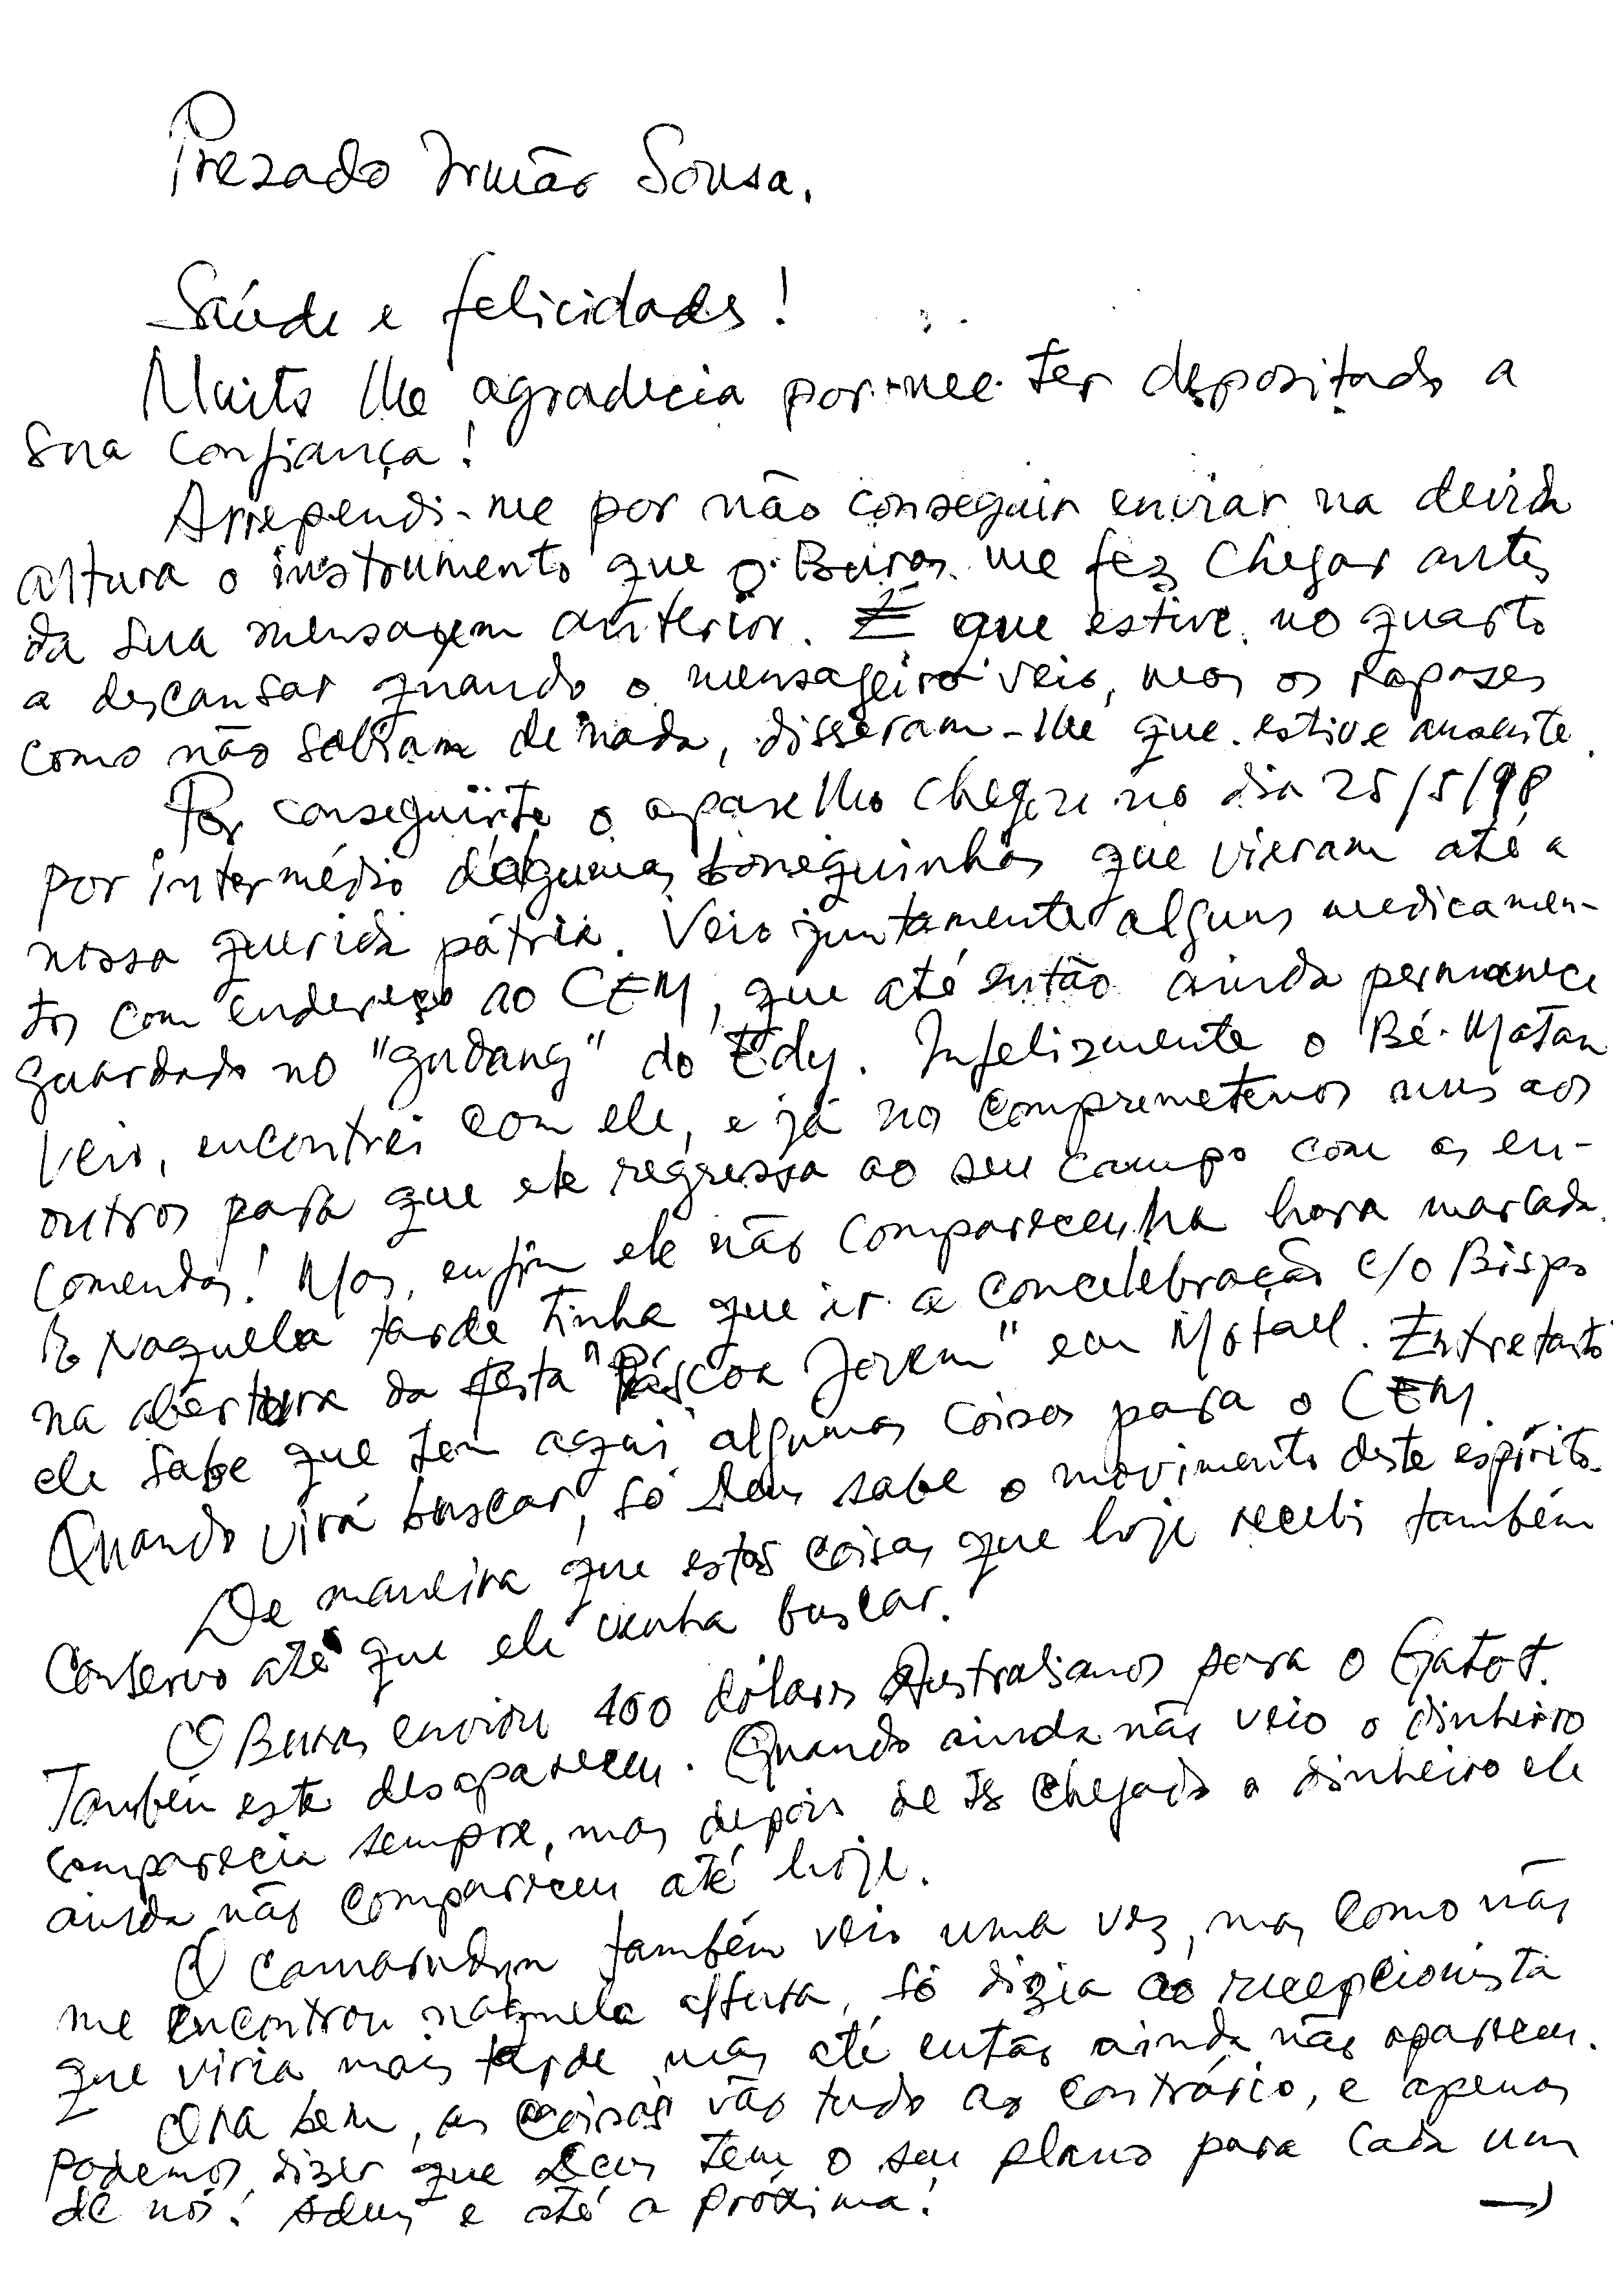 Prezado Irmão Sousa,
Saúde e felicidades!
Muito lhe agradecia por me ter depositado a
sua confiança!
Arrependi-me por não conseguir enviar na devida
altura o instrumento que o Buras me fez chegar antes
da sua mensagem anterior. É que estive no quarto
a descansar quando o mensageiro veio, mas os rapases
como não sabiam de nada, disseram-lhe que estive ausente.
Por conseguinte o aparelho chegou no dia 25/5/98
por intermédio dalgumas bonequinhas que vieram até a
nossa querida pátria. Veio juntamente alguns medicamen-
tos com endereço ao CEM, que até então ainda permanece
guardado no "gudang" do Edy. Infelizmente o Bé-Matan
veio, encontrei com ele, e já nos compremetemos uns aos
outros para que ele regressa ao seu campo com as en-
comendas! Mas, enfim ele não compareceu na hora marcada.
E Naquela tarde tinha que ir a concelebração c/o Bispo
na abertura da festa "Páscoa Jovem" em Motael. Entretanto
ele sabe que tem aqui algumas coisas para o CEM.
Quando virá buscar, só Deus sabe o movimento deste espírito.
De maneira que estas coisas que hoje recebi também
conservo até que ele venha buscar.
O Buras enviou 400 dólares Australianos para o Gatot.
Também este desapareceu. Quando ainda não veio o dinheiro
comparecia sempre, mas depois de ter chegado o dinheiro ele
ainda não compareceu até hoje.
O Camarudyn também veio uma vez, mas como não
me encontrou naquela altura, só dizia ao recepcionista
que viria mais tarde mas até então ainda não apareceu.
Ora bem, as coisas vão tudo ao contrário, e apenas
podemos dizer que Deus tem o seu plano para cada um
de nós! Adeus e até a próxima!
→